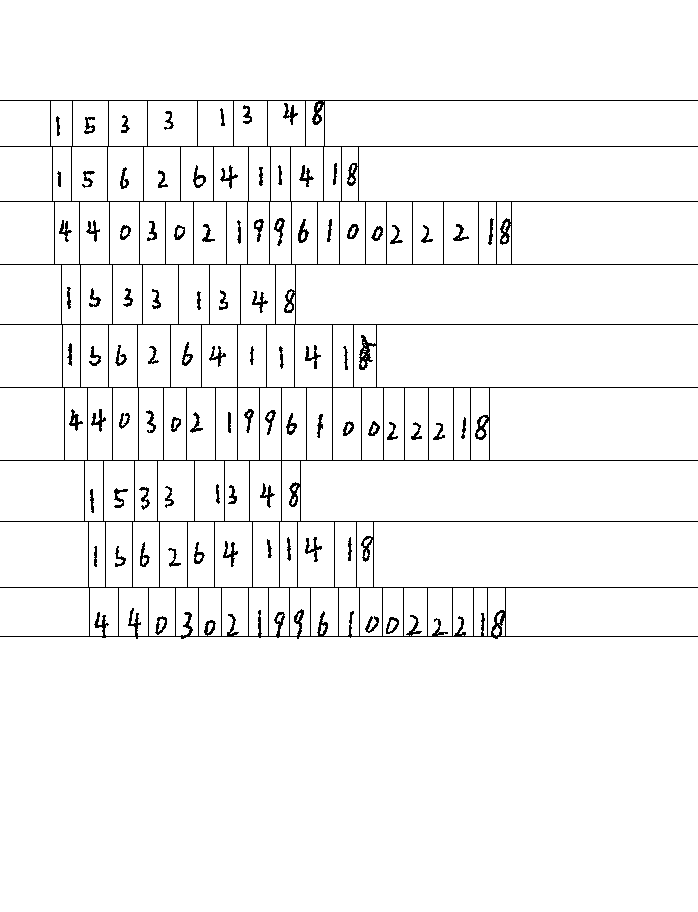 15331348
15626411418
440302199610022218
15331348
1562641141
440302199610022218
15331348
15626411418
440302199610022218